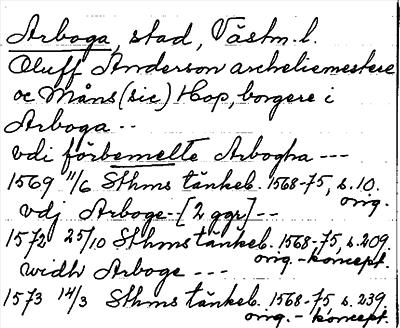 Arboga, stad, Västm.l.
Oluff Anderson archeliemestere
oc Måns (sic) Hop, borgere i
Arboga --
vdi förbemelte Arbogha ---
1569 11/6 Sthms tänkeb. 1568-75, s. 10.
orig.
vdj Arboge- [2 ggr] --
1572 25/10 Sthms tänkeb. 1568-75, s. 209.
orig.- koncept.
widh Arboge ---
1573 14/3 Sthms tänkeb. 1568-75, s. 239.
orig. - koncept.